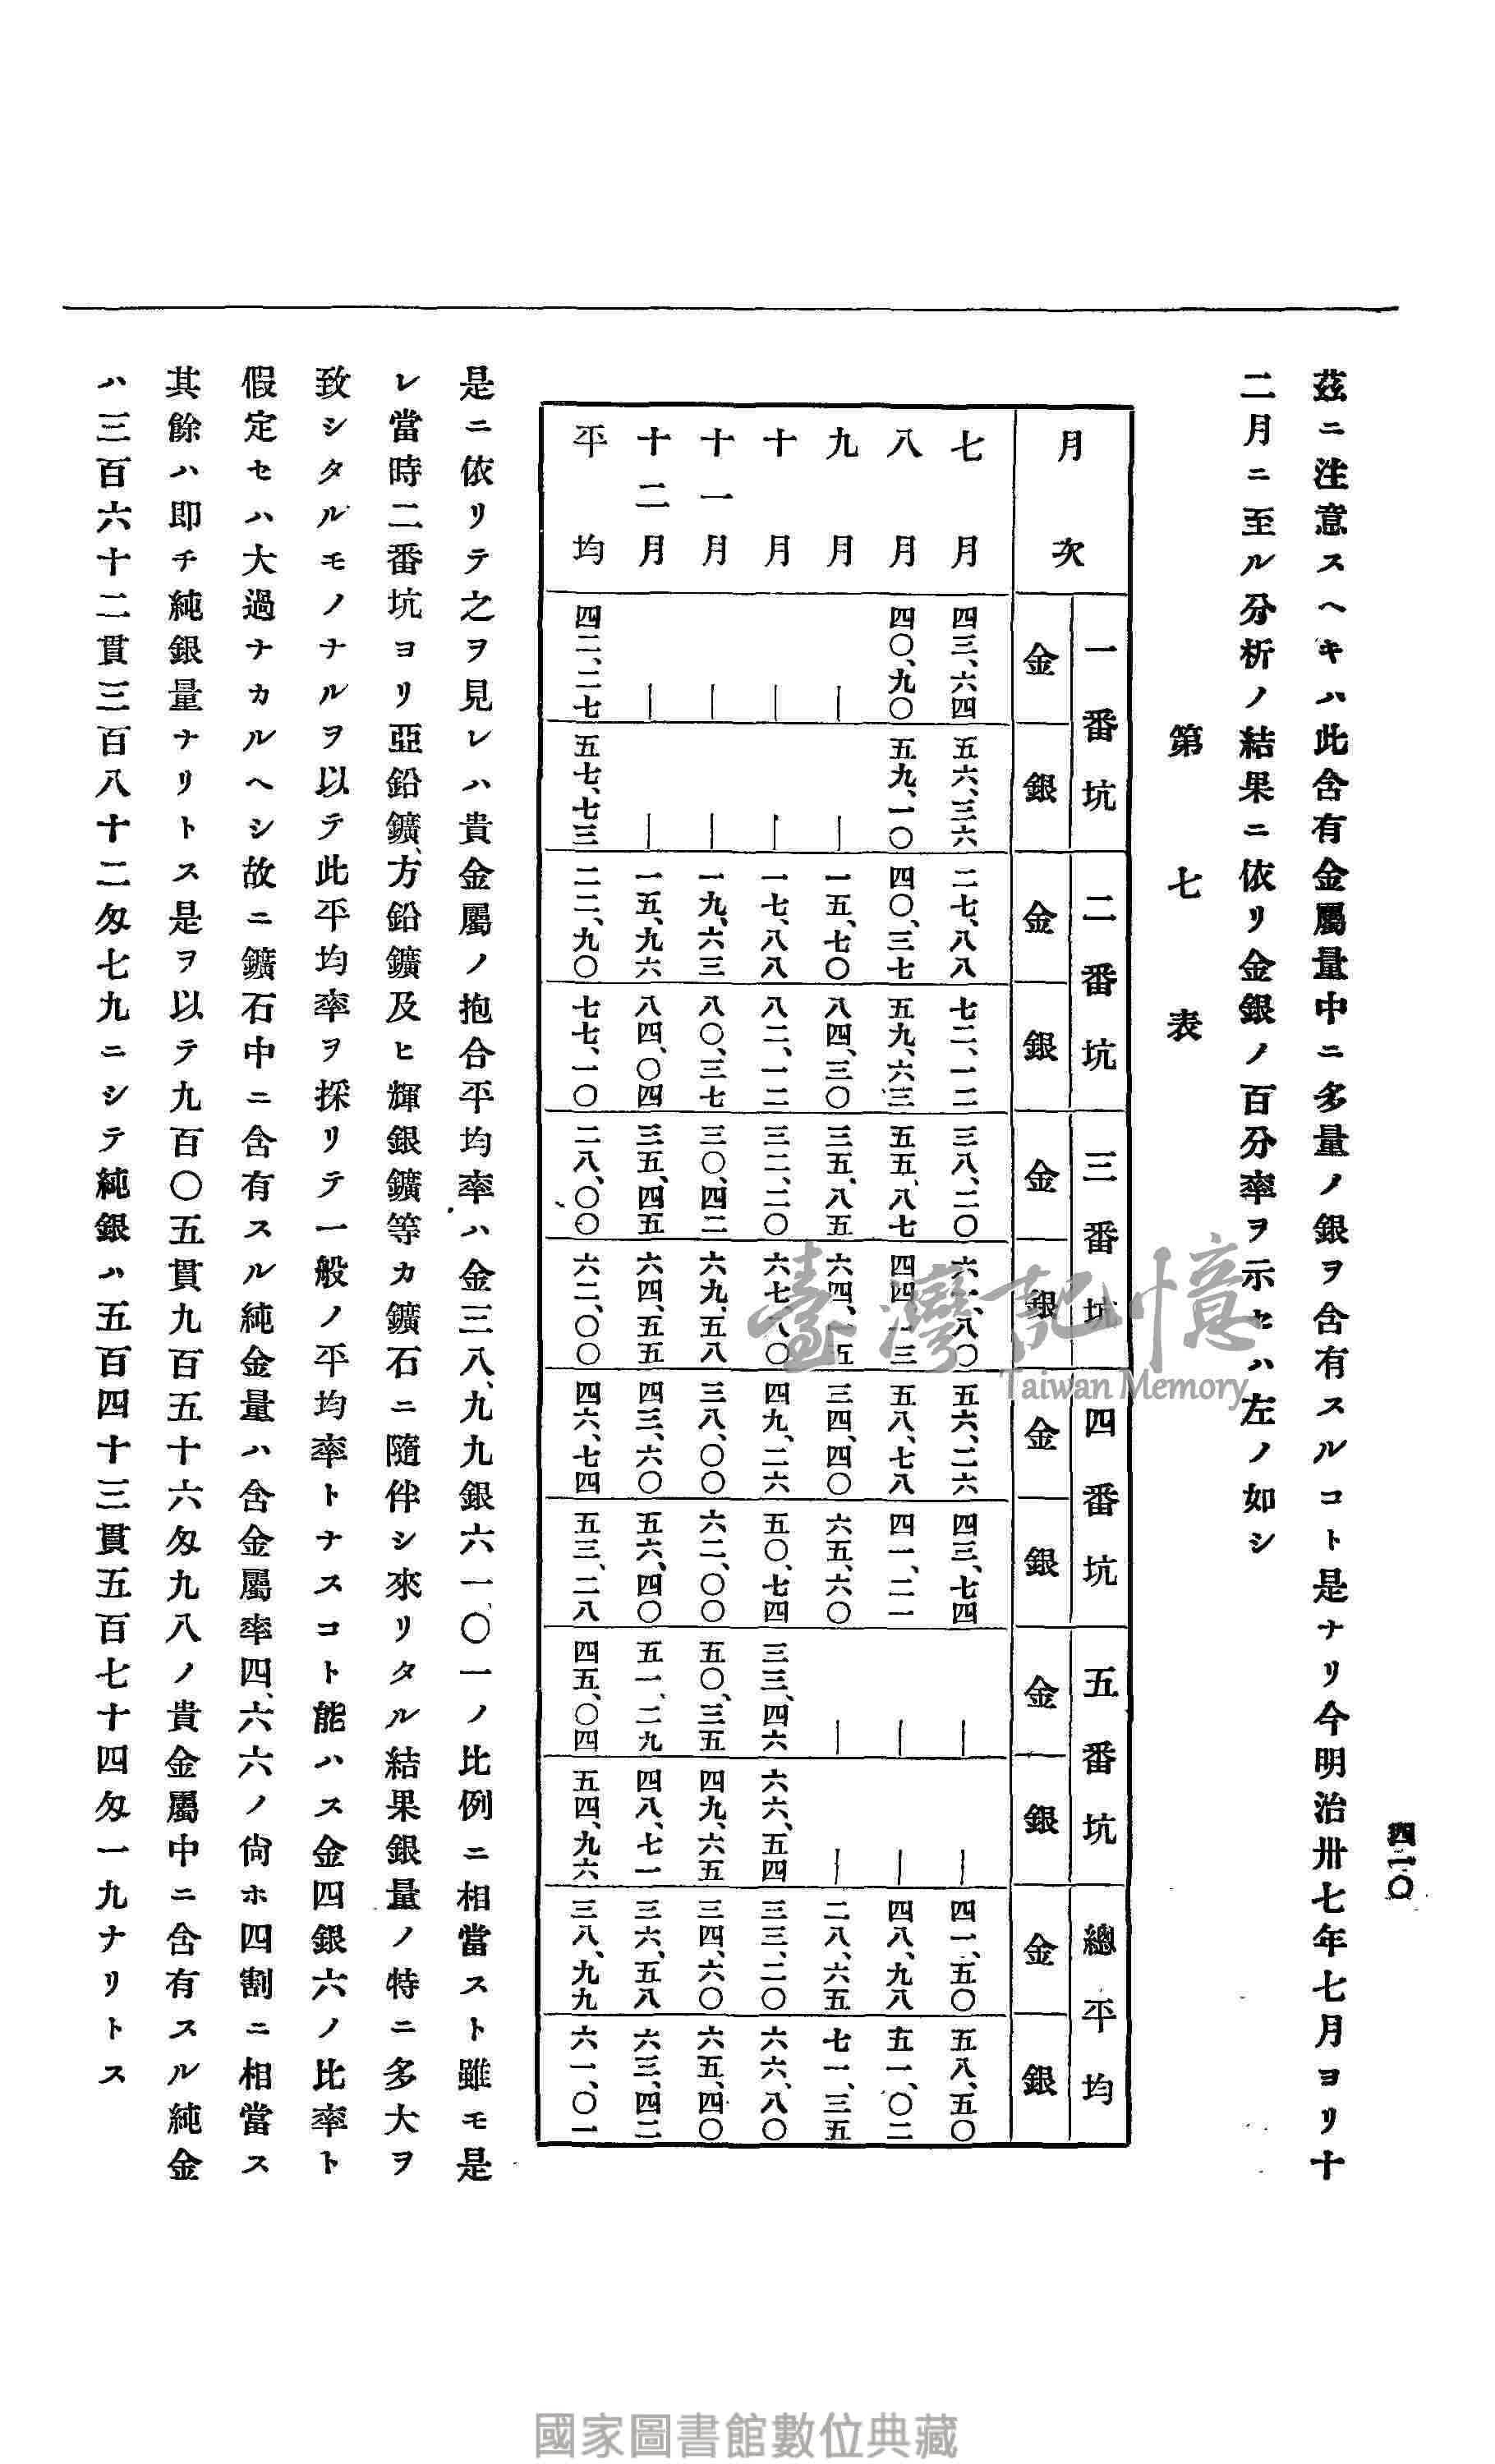 四一〇
茲ニ注意スヘキハ此含有金屬量中ニ多量ノ銀ヲ含有スルコト是ナリ今明治卅七年七月ヨリ十
二月ニ至ル分析ノ結果ニ依リ金銀ノ百分率ヲ示セハ左ノ如シ
第七表
月次 一番坑 二番坑 三番坑 四番坑 五番坑 總平均
金 銀 金 銀 金 銀 金 銀 金 銀 金 銀
七月 四三、六四 五六、三六 二七、八八 七二、一二 三八、二〇 六一、八〇 五六、二六 四三、七四 ― ― 四一、五〇 五八、五〇
八月 四〇、九〇 五九、一〇 四〇、三七 五九、六三 五五、八七 四四、一三 五八、七八 四一、二一 ― ― 四八、九八 五一、〇二
九月 ― ― 一五、七〇 八四、三〇 三五、八五 六四、一五 三四、四〇 六五、六〇 ― ― 二八、六五 七一、三五
十月 ― ― 一七、八八 八二、一二 三二、二〇 六七、八〇 四九、二六 五〇、七四 三三、四六 六六、五四 三三、二〇 六六、八〇
十一月 ― ― 一九、六三 八〇、三七 三〇、四二 六九、五八 三八、〇〇 六二、〇〇 五〇、三五 四九、六五 三四、六〇 六五、四〇
十二月 ― ― 一五、九六 八四、〇四 三五、四五 六四、五五 四三、六〇 五六、四〇 五一、二九 四八、七一 三六、五八 六三、四二
平均 四二、二七 五七、七三 二二、九〇 七七、一〇 二八、〇〇 六二、〇〇 四六、七四 五三、二八 四五、〇四 五四、九六 三八、九九 六一、〇一
是ニ依リテ之ヲ見レハ貴金屬ノ抱合平均率ハ金三八、九九銀六一、〇一ノ比例ニ相當スト雖モ是
レ當時二番坑ヨリ亞鉛鑛、方鉛鑛及ヒ輝銀鑛等カ鑛石ニ隨伴シ來リタル結果銀量ノ特ニ多大ヲ
致シタルモノナルヲ以テ此平均率ヲ採リテ一般ノ平均率トナスコト能ハス金四銀六ノ比率ト
假定セハ大過ナカルヘシ故ニ鑛石中ニ含有スル純金量ハ含金屬率四、六六ノ尙ホ四割ニ相當ス
其餘ハ即チ純銀量ナリトス是ヲ以テ九百〇五貫九百五十六匁九八ノ貴金屬中ニ含有スル純金
ハ三百六十二貫三百八十二匁七九ニシテ純銀ハ五百四十三貫五百七十四匁一九ナリトス
臺灣記憶
Taiwan Memory
國家圖書館數位典藏